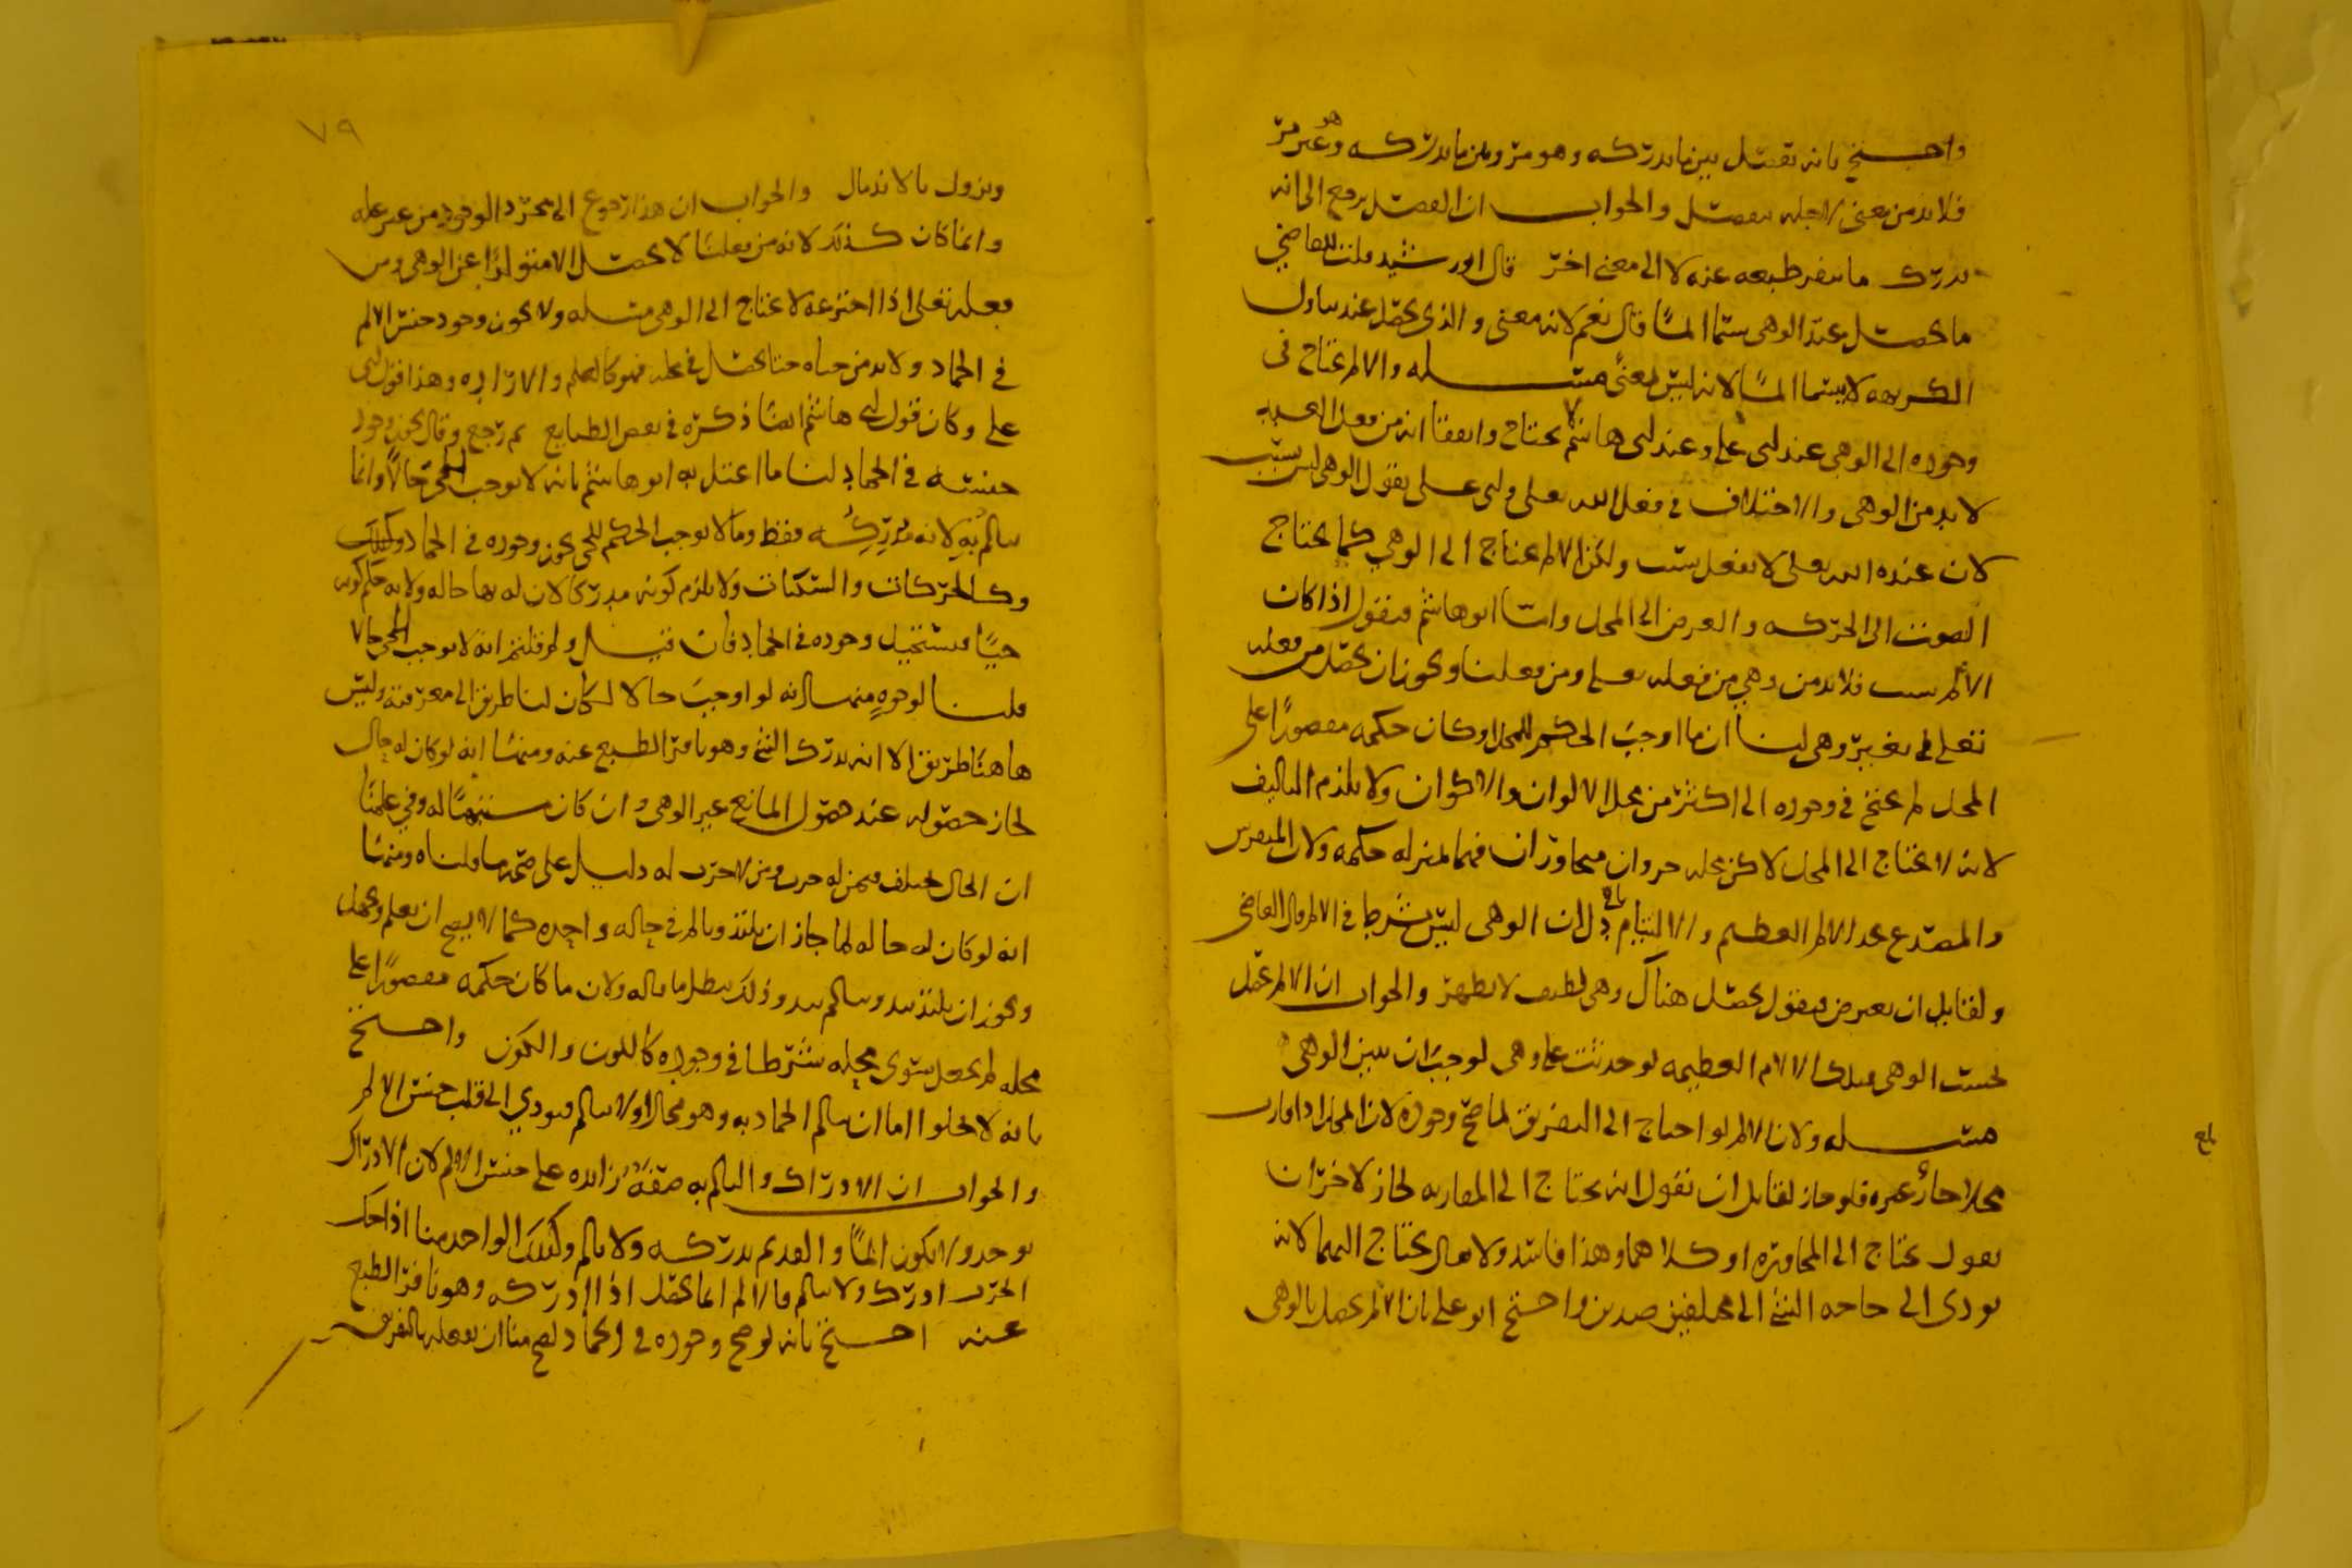 واحتج بانه يفصل بين ما يدركه وهو مر وبين ما يدركه وهو غير مر
فلا بد من معنى لاجله يفصل والجواب ان الفصل يرجع الى انه
يدرك ما ينفر طبعه عنه لا الى معنى اخر قال ابو رشيد قلت للقاضي
ما يحصل عند الوهي يسما الما قال نعم لانه معنى والذي يحصل عند تناول
الكريهه لا يسما الما لانه ليس بمعنى مسله والالم يحتاج في
وجوده الى الوهي عند ابي علي وعند ابي هاشم لا يحتاج واتفقا انه من فعل العبد
لا بد من الوهي والاختلاف في فعل الله تعلى وابي علي يقول الوهي ليس بسبب
لان عنده الله تعلى لا يفعل بسبب ولكن الالم يحتاج الى الوهي كما يحتاج
الصوت الى الحركه والعرض الى المحل واما ابو هاشم فيقول اذا كان
الالم بسبب فلا بد من وهي من فعله تعلى ومن فعلنا ويجوز ان يحصل من فعله
تعلى في غير وهي لنا ان ما اوجب الحكم للمحل او كان حكمه مقصورا على
المحل لم يحتج في وجوده الى اكثر من محل الالوان والاكوان ولا يلزم التاليف
لانه لا يحتاج الى المحل لا كن محله جزوان متجاوران فهما بمنزله حكمه ولان المنقرس
والمصدع يجد الالم العظيم والالتيام باق دل ان الوهي ليس بشرط في الالم قال القاضي
ولقايل ان يعترض فيقول يحصل هناك وهي لطيف لا يظهر والجواب ان الالم يحصل
بحسب الوهي فتلك الالام العظيمه لو حدثت عن وهي لوجب ان يتبين الوهي
مسله ولان الالم لو احتاج الى التفريق لما صح وجوده لان المحل اذا فارق
محلا جاور غيره فلو جاز لقايل ان يقول انه يحتاج الى المفارقه لجاز لاخر ان
يقول يحتاج الى المجاوره او كلاهما وهذا فاسد ولا يقال يحتاج اليهما لانه
يودي الى حاجه الشي الى مختلفين ضدين واحتج ابو علي بان الالم يحصل بالوهي
بلغ
٧٩
ويزول بالاندمال والجواب ان هذا رجوع الى مجرد الوجود من غير عله
وانما كان كذلك لانه من فعلنا لا يحصل الا متولدا عن الوهي ومن
فعله تعلى اذا اخترعه لا يحتاج الى الوهي مسله ولا يجوز وجود جنس الالم
في الجماد ولا بد من حياه حتا يحصل في محله فهو كالعلم والاراده وهذا قول ابي
علي وكان قول ابي هاشم ايضا ذكره في بعض الطبايع ثم رجع وقال يجوز وجود
جنسه في الجماد لنا ما اعتل به ابو هاشم بانه لا يوجب للحي حالا وانما
يالم به لانه مدركه فقط وما لا يوجب الحكم للحي يجوز وجوده في الجماد وكذلك
وكالحركات والسكنات ولا يلزم كونه مدركا لان له بها حاله ولا به حكم كونه
حيا فيستحيل وجوده في الجماد فان قيل ولم قلتم انه لا يوجب للحي حالا
قلنا لوجوه منها انه لو اوجب حالا لكان لنا طريق الى معرفته وليس
هاهنا طريق الا انه يدرك الشي وهو نافر الطبع عنه ومنها انه لو كان له حال
لجاز حصوله عند حصول المانع غير الوهي وان كان مشتهيا له وفي علمنا
ان الحال يختلف فيمن له جرب ومن لا جرب له دليل على صحه ما قلناه ومنها
انه لو كان له حاله لما جاز ان يلتذ ويالم في حاله واحده كما لا يصح ان يعلم ويجهل
ويجوز ان يلتذ بيد ويالم بيد وذلك يبطل ما قاله ولان ما كان حكمه مقصورا على
محله لم يجعل سوى محله شرطا في وجوده كاللون والكون واحتج
بانه لا يخلوا اما ان يالم الجماد به وهو محال اولا يالم فيودي الى قلب جنس الالم
والجواب ان الادراك والتالم به صفه زايده على جنس الالم لان الادراك
يوجد ولا يكون الما والقديم يدركه ولا يالم وكذلك الواحد منا اذا حك
الجرب ادرك ولا يالم فالالم انما يحصل اذا ادركه وهو نافر الطبع
عنه احتج بانه لو صح وجوده في الجماد لصح منا ان نفعله بالتفريق